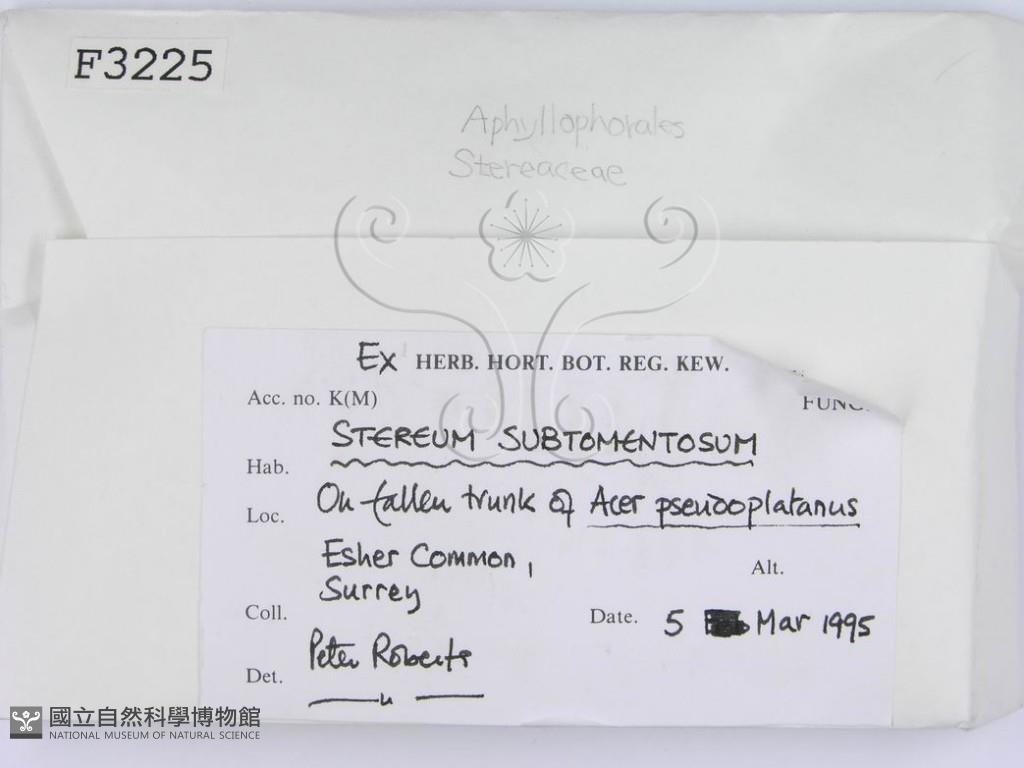 F3225
Aphyllophorales
Stereaceae
Ex HERB. HORT. BOT. REG. KEW.
Acc. no. K(M)
STEREUM SUBTOMENTOSUM
Hab.
On fallen trunk of Acer pseudoplatanus
Loc.
Esher Common,
Surrey
Alt.
Coll.
Peter Roberts
Date. 5 Mar 1995
Det.
— " —
國立自然科學博物館
NATIONAL MUSEUM OF NATURAL SCIENCE